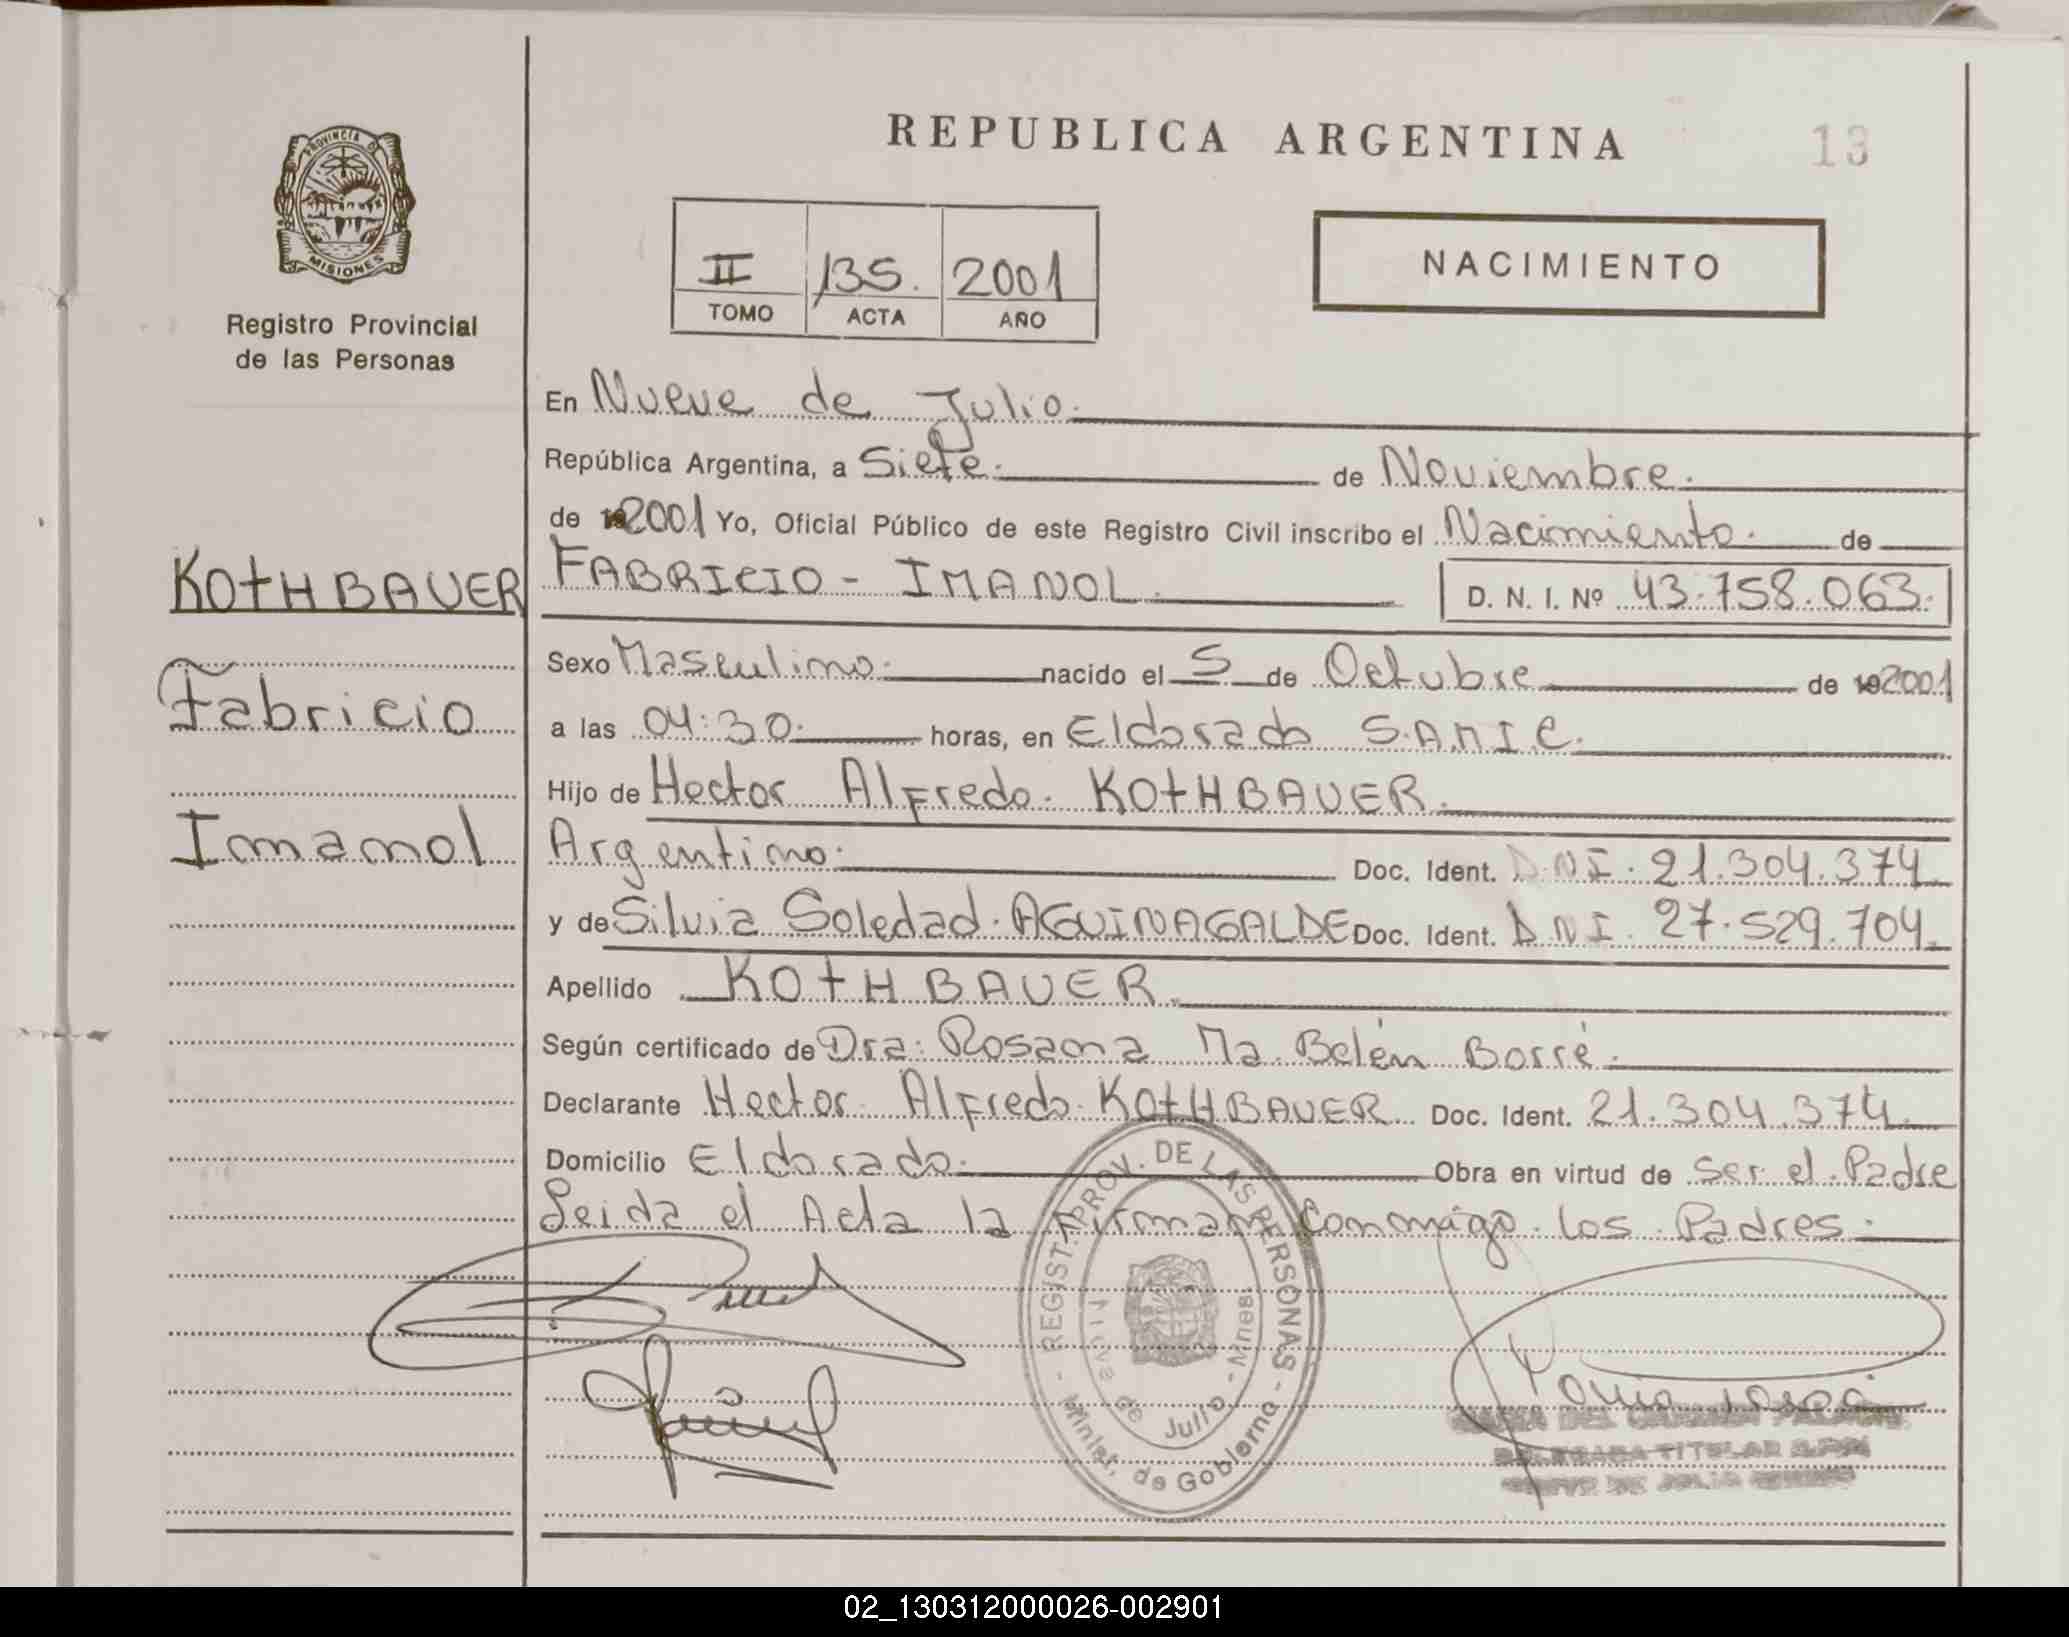 REPUBLICA ARGENTINA
13
PROVINCIA D
MISIONES
Registro Provincial
de las Personas
II 135. 2001
TOMO ACTA AÑO
NACIMIENTO
En Nueve de Julio.
República Argentina, a Siete. de Noviembre.
de 192001 Yo, Oficial Público de este Registro Civil inscribo el Nacimiento. de
KOtHBAUER
FABRICIO - IMANOL. D. N. I. Nº 43.758.063.
Sexo Masculino. nacido el 5 de Octubre de 192001
Fabricio
a las 04:30. horas, en Eldorado S.A.M.I.C.
Hijo de Hector Alfredo. KOtHBAUER.
Imanol
Argentino. Doc. Ident. D.N.I. 21.304.374.
y de Silvia Soledad. AGUINAGALDE Doc. Ident. D.N.I. 27.529.704.
Apellido KOtHBAUER.
Según certificado de Dra. Rosana Ma. Belén Borré.
Declarante Hector Alfredo KOtHBAUER Doc. Ident. 21.304.374.
Domicilio Eldorado. Obra en virtud de Ser el Padre
Leida el Acta la Firman Conmigo los Padres.
REGIST. PROV. DE LAS PERSONAS
Nueve de Julio - Mnes
Minist. de Gobierno
DELEGADA TITULAR
DE JULIO
02_130312000026-002901